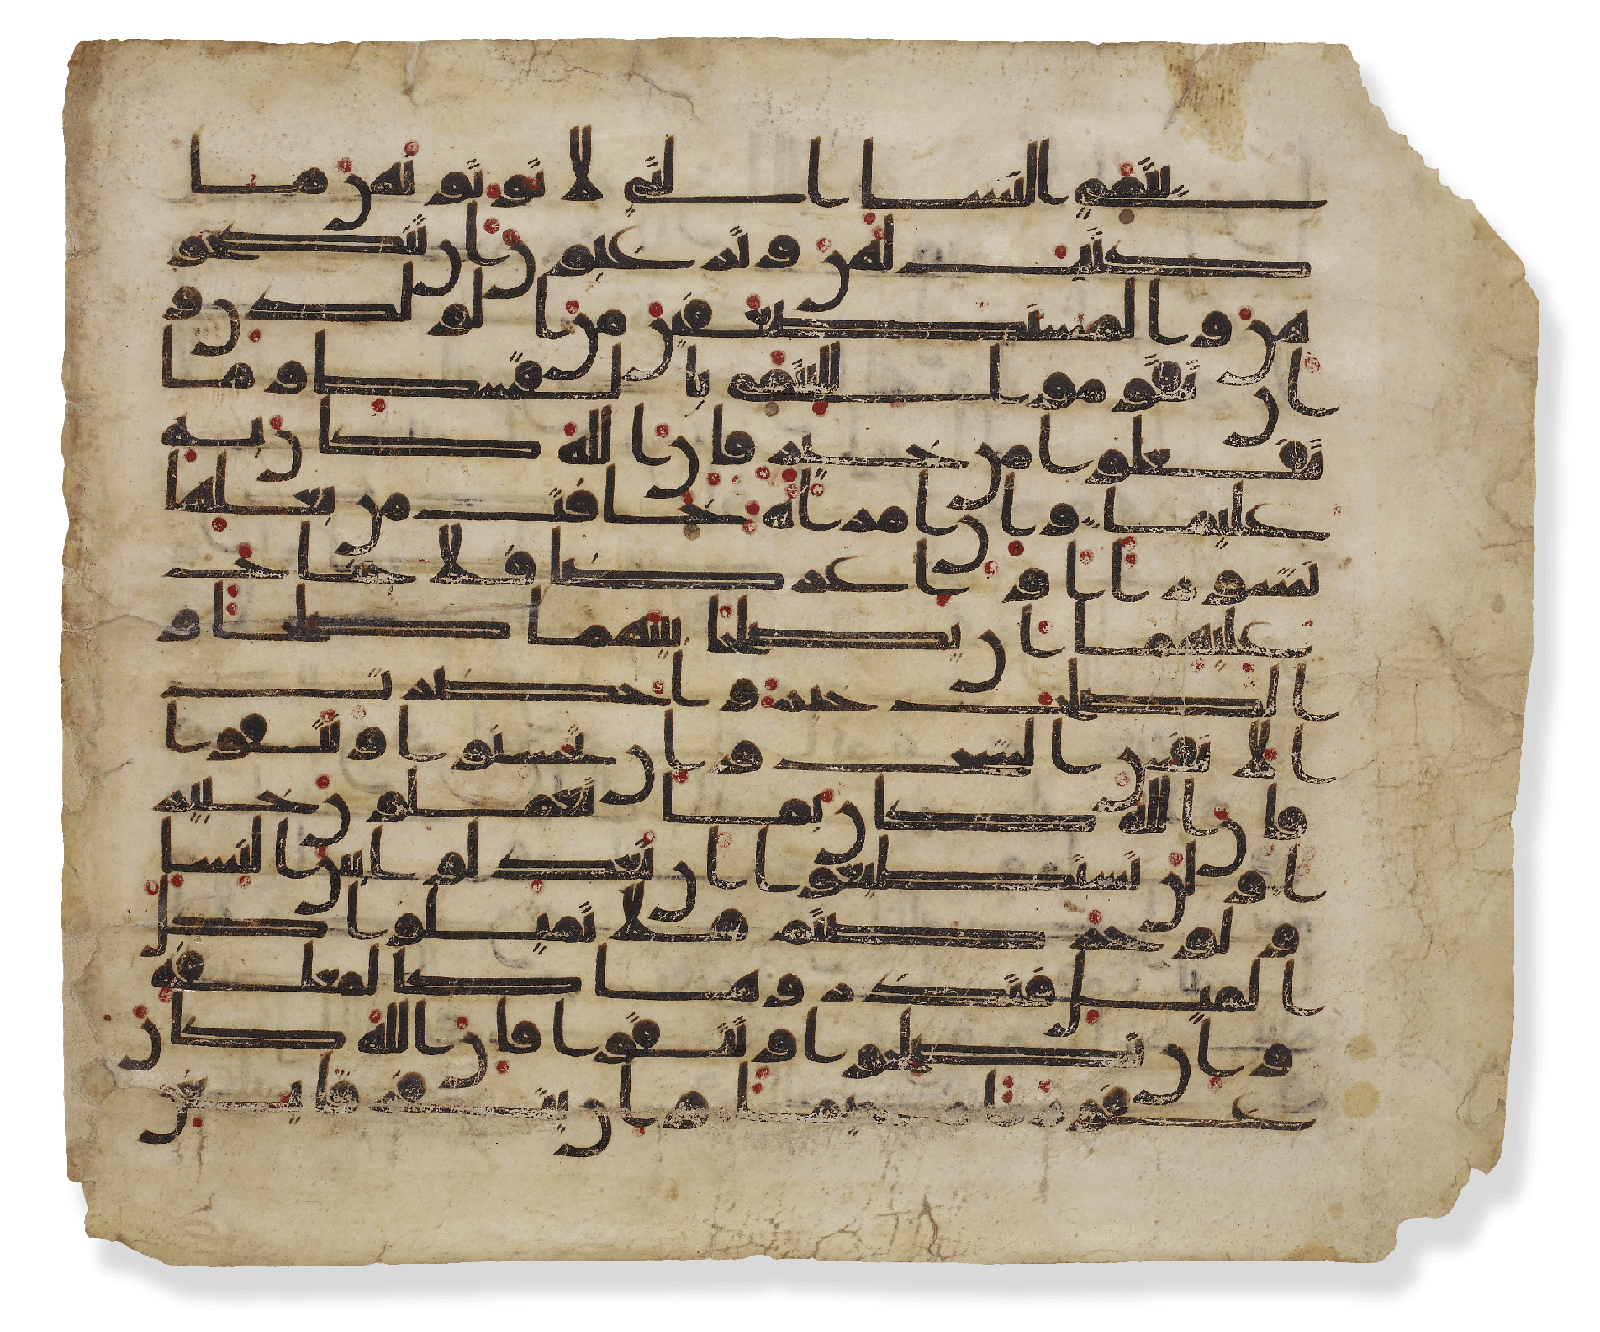 يتمى النسا التى لا توتونهن ما
كتب لهن وترغبون ان تنكحو
هن والمستضعفين من الولدن و
ان تقوموا لليتمى بالقسط وما
تفعلوا من خير فان الله كان به
عليما وان امراة خافت من بعلها
نشوزا او اعرضا فلا جناح
عليهما ان يصلحا بينهما صلحا و
الصلح خير واحضرت
الانفس الشح وان تحسنوا وتتقوا
فان الله كان بما تعملون خبير
ا ولن تستطيعوا ان تعدلوا بين النسا
ولو حرصتم فلا تميلوا كل
الميل فتذروها كالمعلقة
وان تصلحوا وتتقوا فان الله كان
غفورا رحيما وان يتفرقا يغن